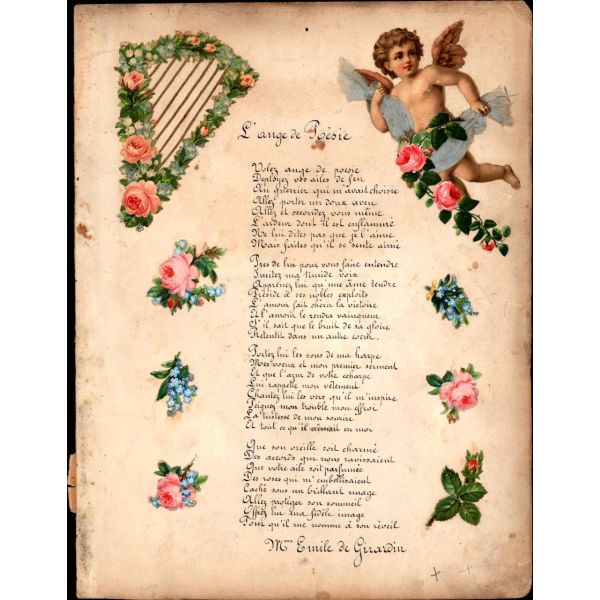 L'ange de Poésie
Volez ange de poesie
Deployez vos ailes de feu
Au guerrier qui m'avait choisie
Allez porter un doux aveu
Allez et secondez vous même
L'ardeur dont il est enflammé
Ne lui dites pas que je l'aime
Mais faites qu'il se sente aimé
Pres de lui pour vous faire entendre
Imitez ma timide voix
Apprenez lui qu'une âme tendre
Préside à ses nobles exploits
L'amour fait chérir la victoire
Et l'amour le rendra vainqueur
S'il sait que le bruit de sa gloire
Retentit dans un autre coeur.
Portez lui les sons de ma harpe
Mes voeux et mon premier serment
Et que l'azur de votre echarpe
Lui rappelle mon vêtement
Chantez lui les vers qu'il m'inspire
Peignez mon trouble mon effroi
La tristesse de mon sourire
Et tout ce qu'il aimait en moi
Que son oreille soit charmé
Des accords qui nous ravissaient
Que votre aile soit parfumée
Des roses qui m'embellissaient
Caché sous un brillant nuage
Allez protéger son sommeil
Offrez lui ma fidèle image
Pour qu'il me nomme à son réveil
Mme Emile de Girardin